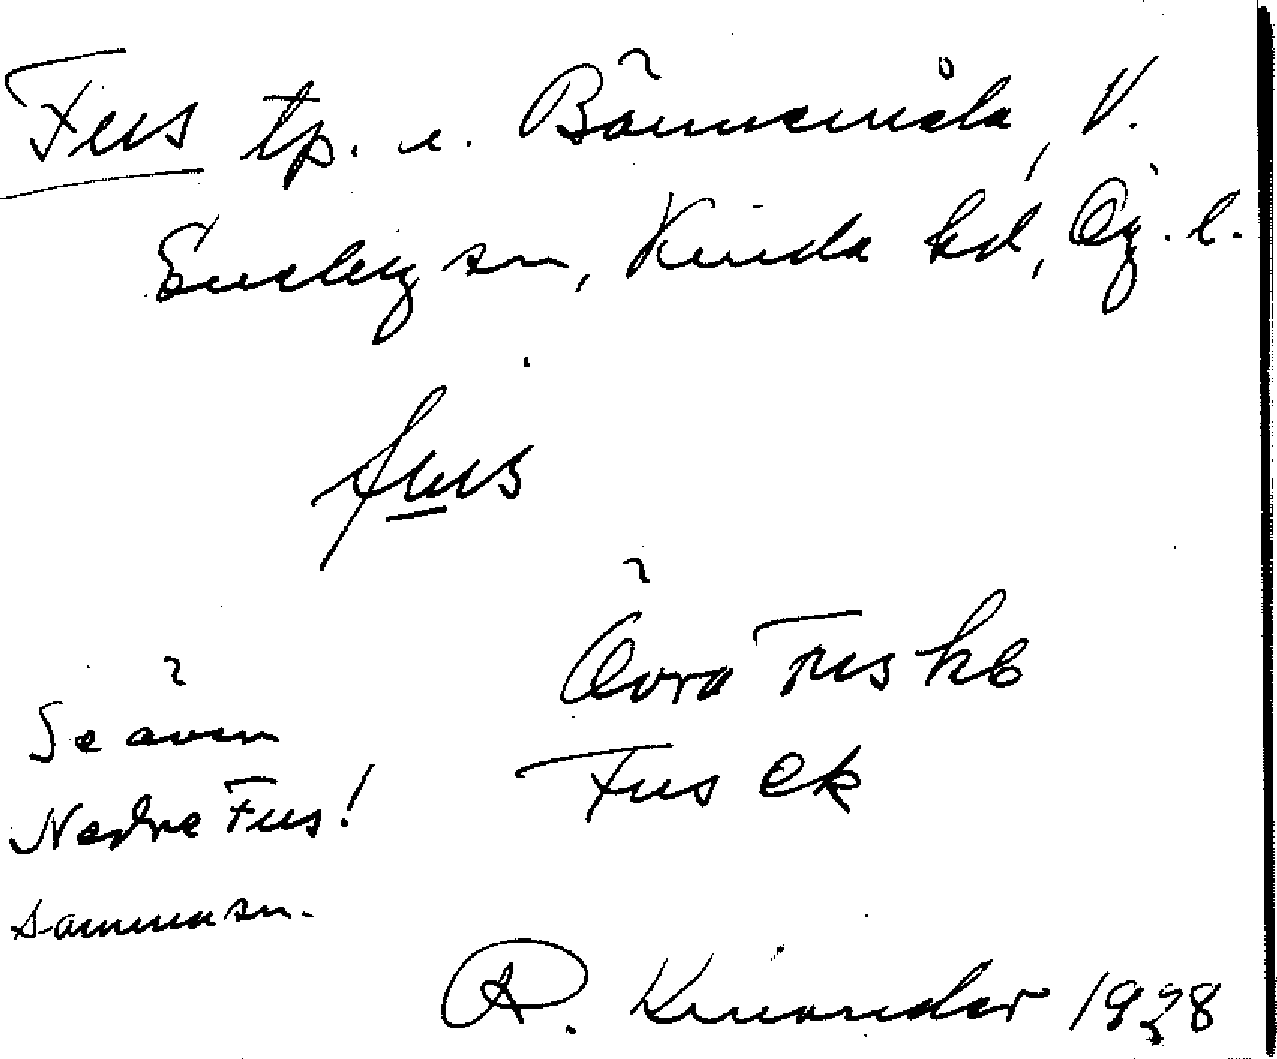 Fus tp. i. Bönnemåla, V.
Eneby sn, Kinda hd, Ög. l.
fus
Övra Fus kb
Fus ek
Se även
Nedre Fus!
samma sn.
R. Kinander 1928